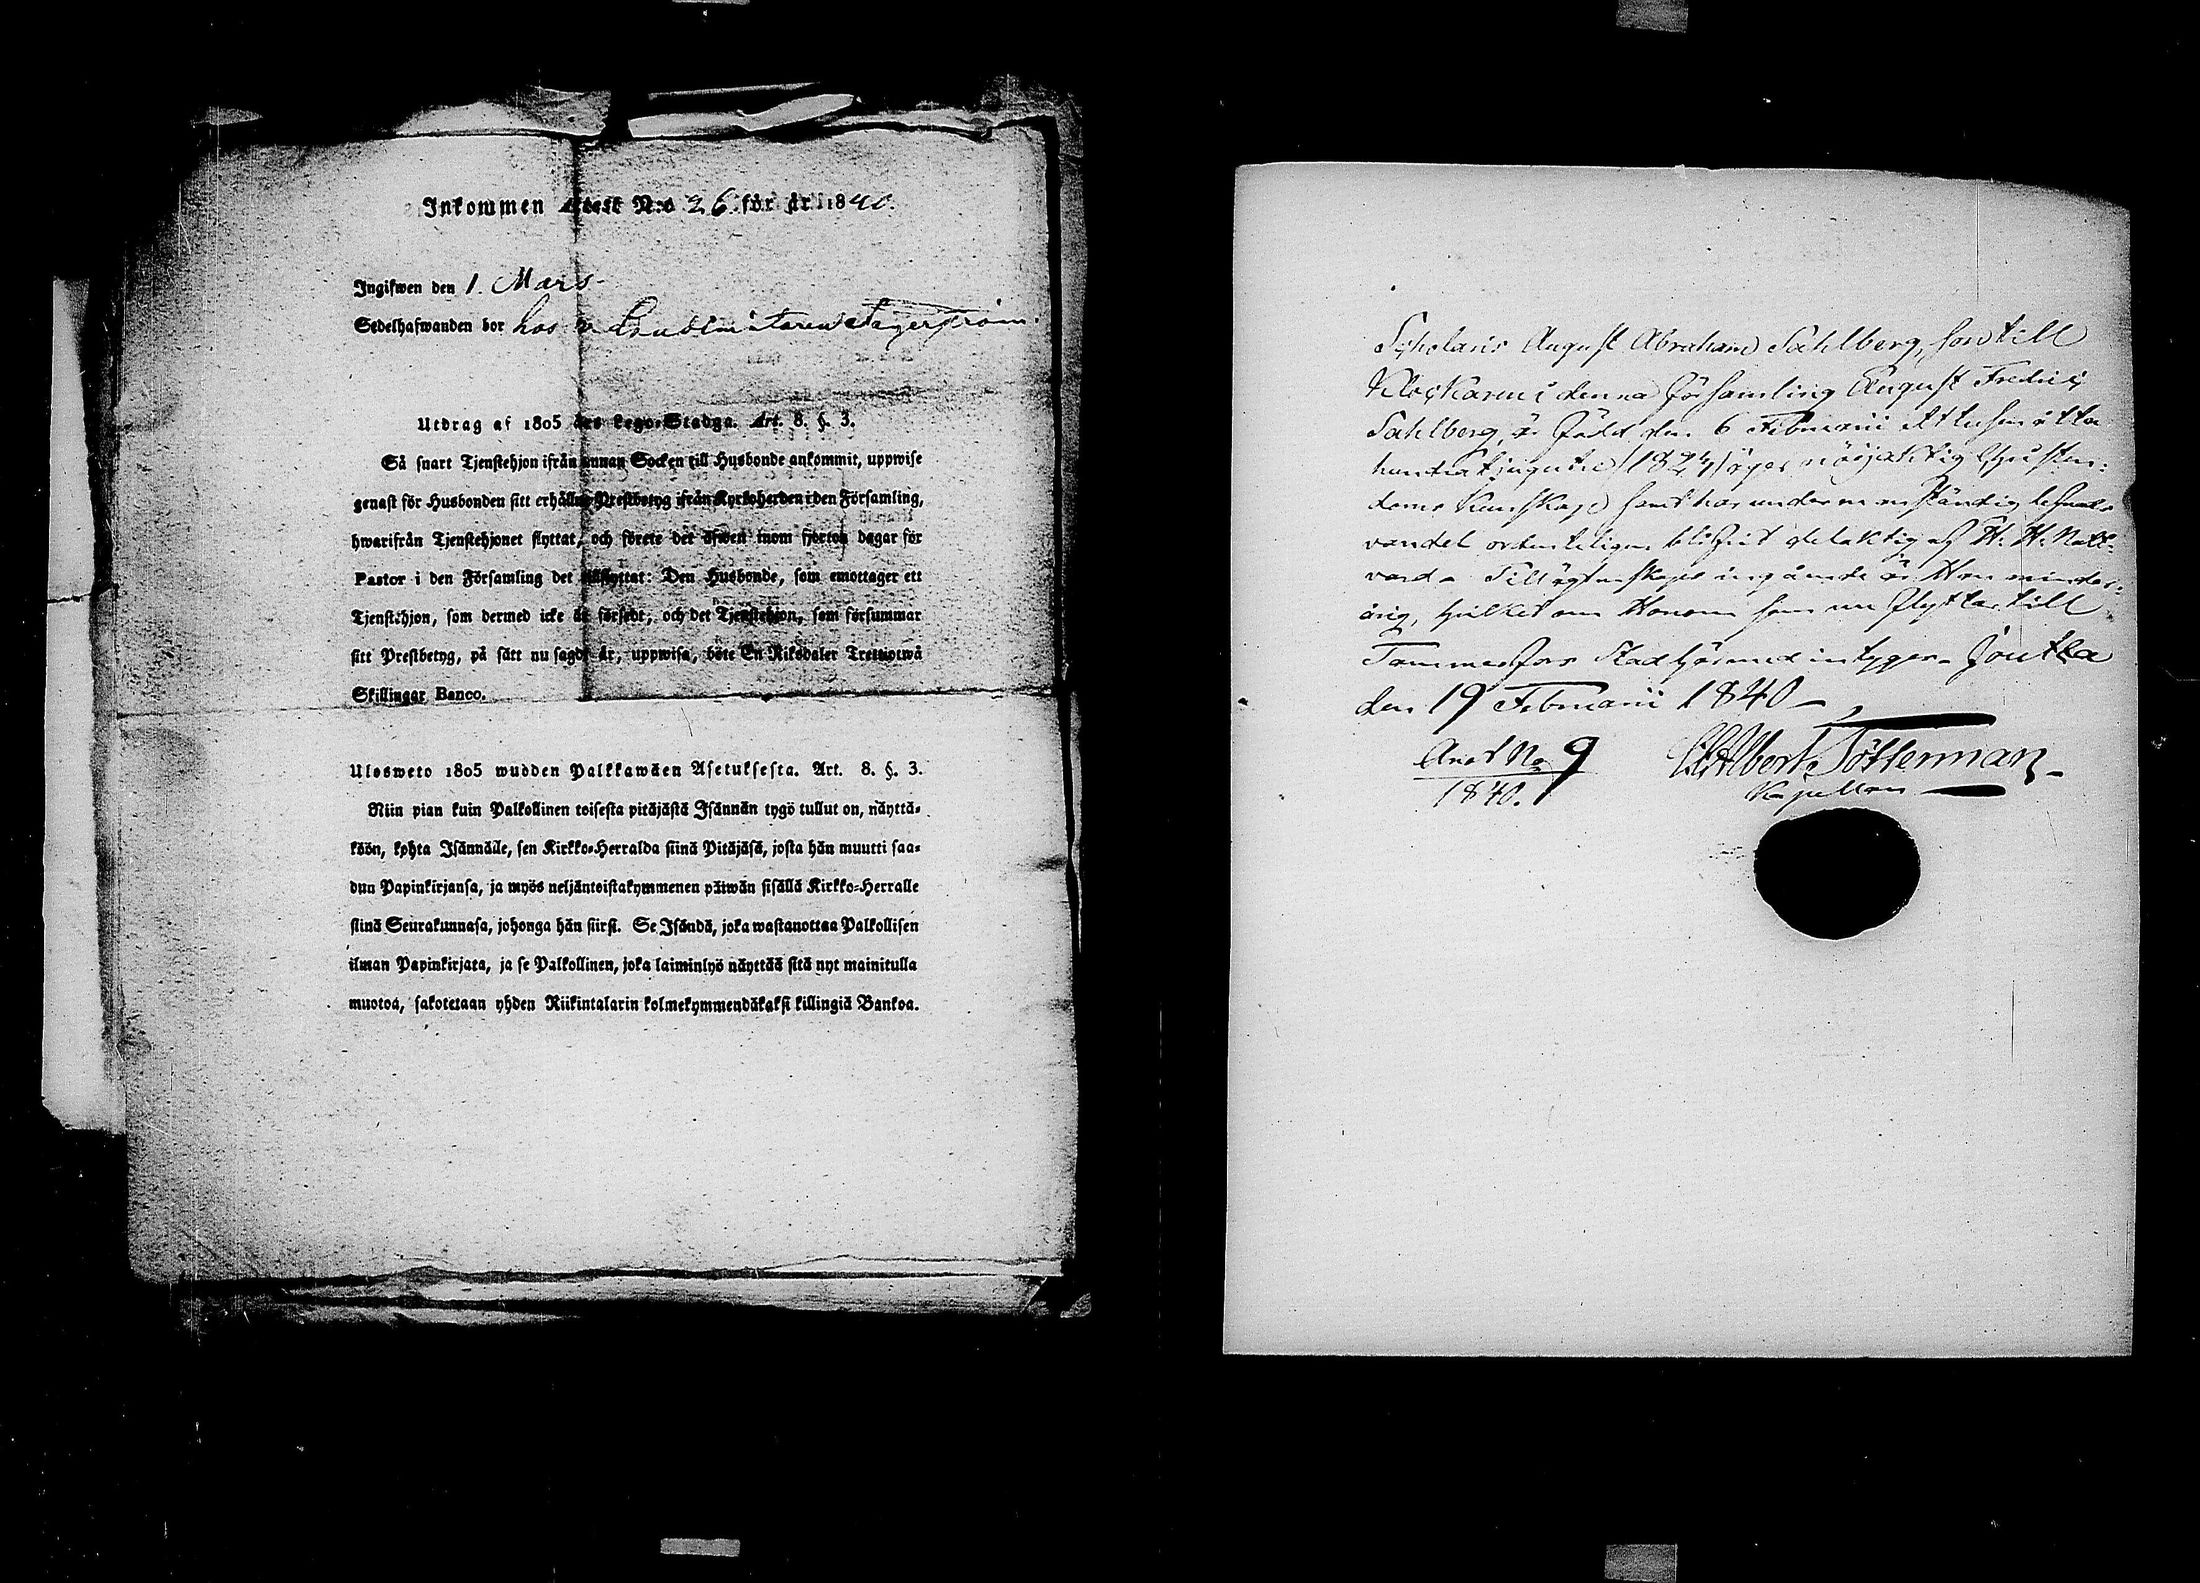 Inkommen Attest N:o 26 för år 1840.
Ingifwen den 1. Mars
Sedelhafwanden bor hos Lagerström.
Utdrag af 1805 års Lego-Stadga. Art. 8. §. 3.
Så snart Tjenstehjon ifrån annan Socken till Husbonde ankommit, uppwise
genast för Husbonden sitt erhållne Prestbetyg ifrån Kyrkoherden i den Församling,
hwarifrån Tjenstehjonet flyttat, och förete det äfwen inom fjorton dagar för
Pastor i den Församling det tillflyttat: Den Husbonde, som emottager ett
Tjenstehjon, som dermed icke är försedt, och det Tjenstehjon, som försummar
sitt Prestbetyg, på sätt nu sagdt är, uppwisa, böte En Riksdaler Trettiotwå
Skillingar Banco.
Ulosweto 1805 wuoden Palkkawäen Asetuksesta. Art. 8. §. 3.
Niin pian kuin Palkollinen toisesta pitäjästä Isännän tygö tullut on, näyttä-
köön, kohta Isännälle, sen Kirkko-Herralda siinä Pitäjäsä, josta hän muutti saa-
dun Papinkirjansa, ja myös neljäntoistakymmenen päiwän sisällä Kirkko-Herralle
siinä Seurakunnasa, johonga hän siirsi. Se Isändä, joka wastanottaa Palkollisen
ilman Papinkirjata, ja se Palkollinen, joka laiminlyö näyttää sitä nyt mainitulla
muotoa, sakotetaan yhden Riikintalarin kolmekymmendäkaksi killingiä Bankoa.
Scholaris August Abraham Sahlberg, son till
Klockaren i denna församling August Fredric
Sahlberg, är född den 6 Februarii ett tusen åtta
hundra tjugu (1824) äger nöijaktig Christen-
doms Kunskap samt har under en anständig lefnads
vandel ordenteligen blifvit delaktig af H. H. Natt-
vard. Till ägtenskaps ingående är Han minder-
årig, hvilket om Honom som nu flyttar till
Tammerfors Stad härmed intygas. Joutka
den 19 Februarii 1840
Anot No 9
1840.
Albert Tötterman
Kapellan